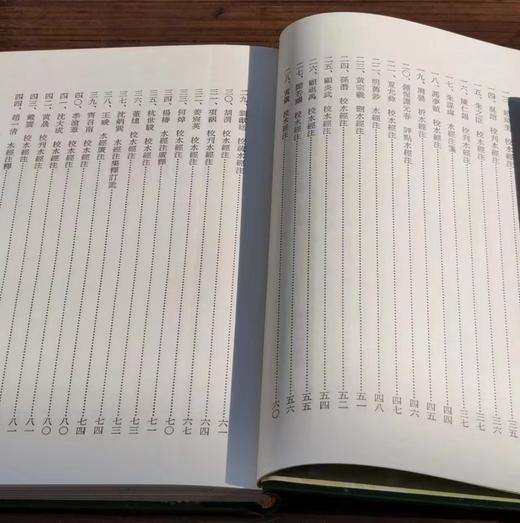 美 校水經注 三五
一四、吳琯 校刊水經注 三七
一五、朱之臣 校水經注 三七
一六、陳仁錫 校刊水經注 三七
一七、朱謀㙔 水經注箋 四四
一八、馮夢禎 校水經注 四五
一九、周嬰 析水經注 四六
二〇、鍾惺譚元春 評點水經注 四七
二一、夏允彝 校水經注 四八
二二、明舊鈔 校水經注
二三、黃宗羲 刪水經注 五二
二四、孫潛 校水經注 五四
二五、顧炎武 校水經注 五四
二六、顧祖禹 校水經注 五五
二七、閻若璩 校水經注 五六
二八、黃儀 校水經注 六〇
二九、劉獻廷 校水經注
三〇、胡渭 校水經注 六一
三一、項絪 校刊水經注 六四
三二、姜宸英 校水經注 六四
三三、何焯 校水經注
三四、楊椿 水經注廣釋 七〇
三五、杭世駿 校水經注 七一
三六、董熜 校水經注
三七、沈炳巽 水經注集釋訂訛 七三
三八、王峻 水經廣注 七三
三九、齊召南 校水經注 七四
四〇、季滄葦 校水經注 七四
四一、沈大成 校水經注 八〇
四二、黃晟 校刊水經注 八〇
四三、戴震 校水經注 八一
四四、趙一清 水經注釋 八一